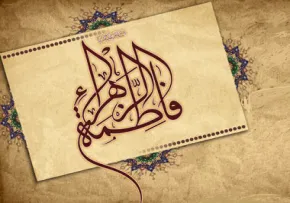 فاطمة الزهراء